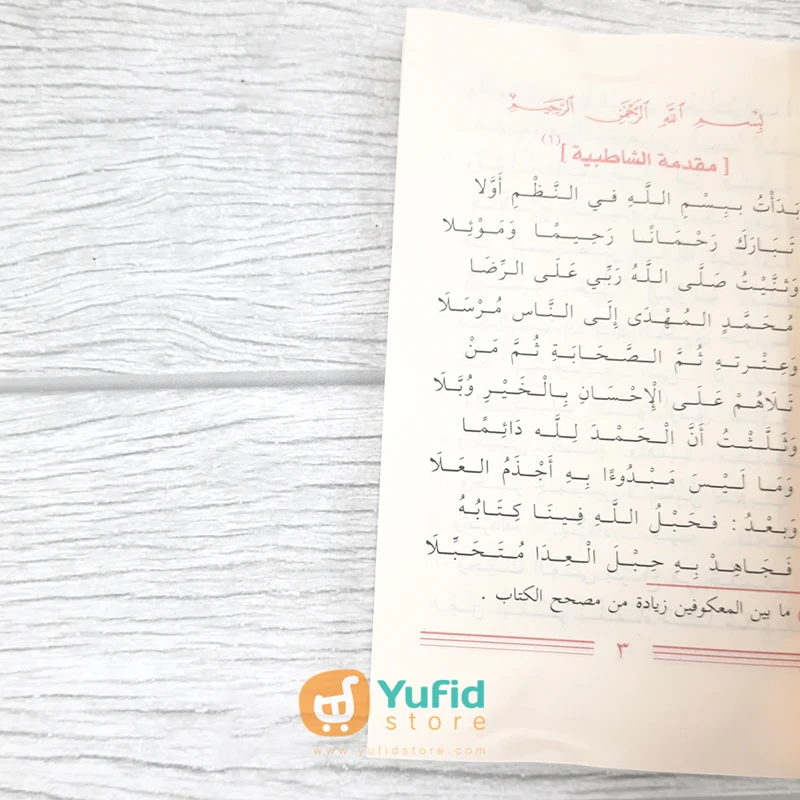 بِسْمِ اللَّهِ الرَّحْمَٰنِ الرَّحِيمِ
[ مقدمة الشاطبية ](١)
بَدَأْتُ بِبِسْمِ اللَّهِ في النَّظْمِ أَوَّلا
تَبَارَكَ رَحْمَانًا رَحِيمًا وَمَوْئِلا
وَثَنَّيْتُ صَلَّى اللَّهُ رَبِّي عَلَى الرِّضَا
مُحَمَّدٍ المُهْدَى إِلَى النَّاسِ مُرْسَلَا
وَعِتْرتهِ ثُمَّ الصَّحَابَةِ ثُمَّ مَنْ
تَلَاهُمْ عَلَى الْإِحْسَانِ بِالْخَيْرِ وُبَّلَا
وَثَلَّثْتُ أَنَّ الْحَمْدَ لِلَّه دَائِمًا
وَمَا لَيْسَ مَبْدُوءًا بِهِ أَجْذَمُ العَلَا
وَبَعْدُ : فَحَبْلُ اللَّهِ فِينَا كِتَابُهُ
فَجَاهِدْ بِهِ حِبْلَ الْعِدَا مُتَحَبِّلَا
ما بين المعكوفين زيادة من مصحح الكتاب .
٣
Yufid
store
www.yufidstore.com